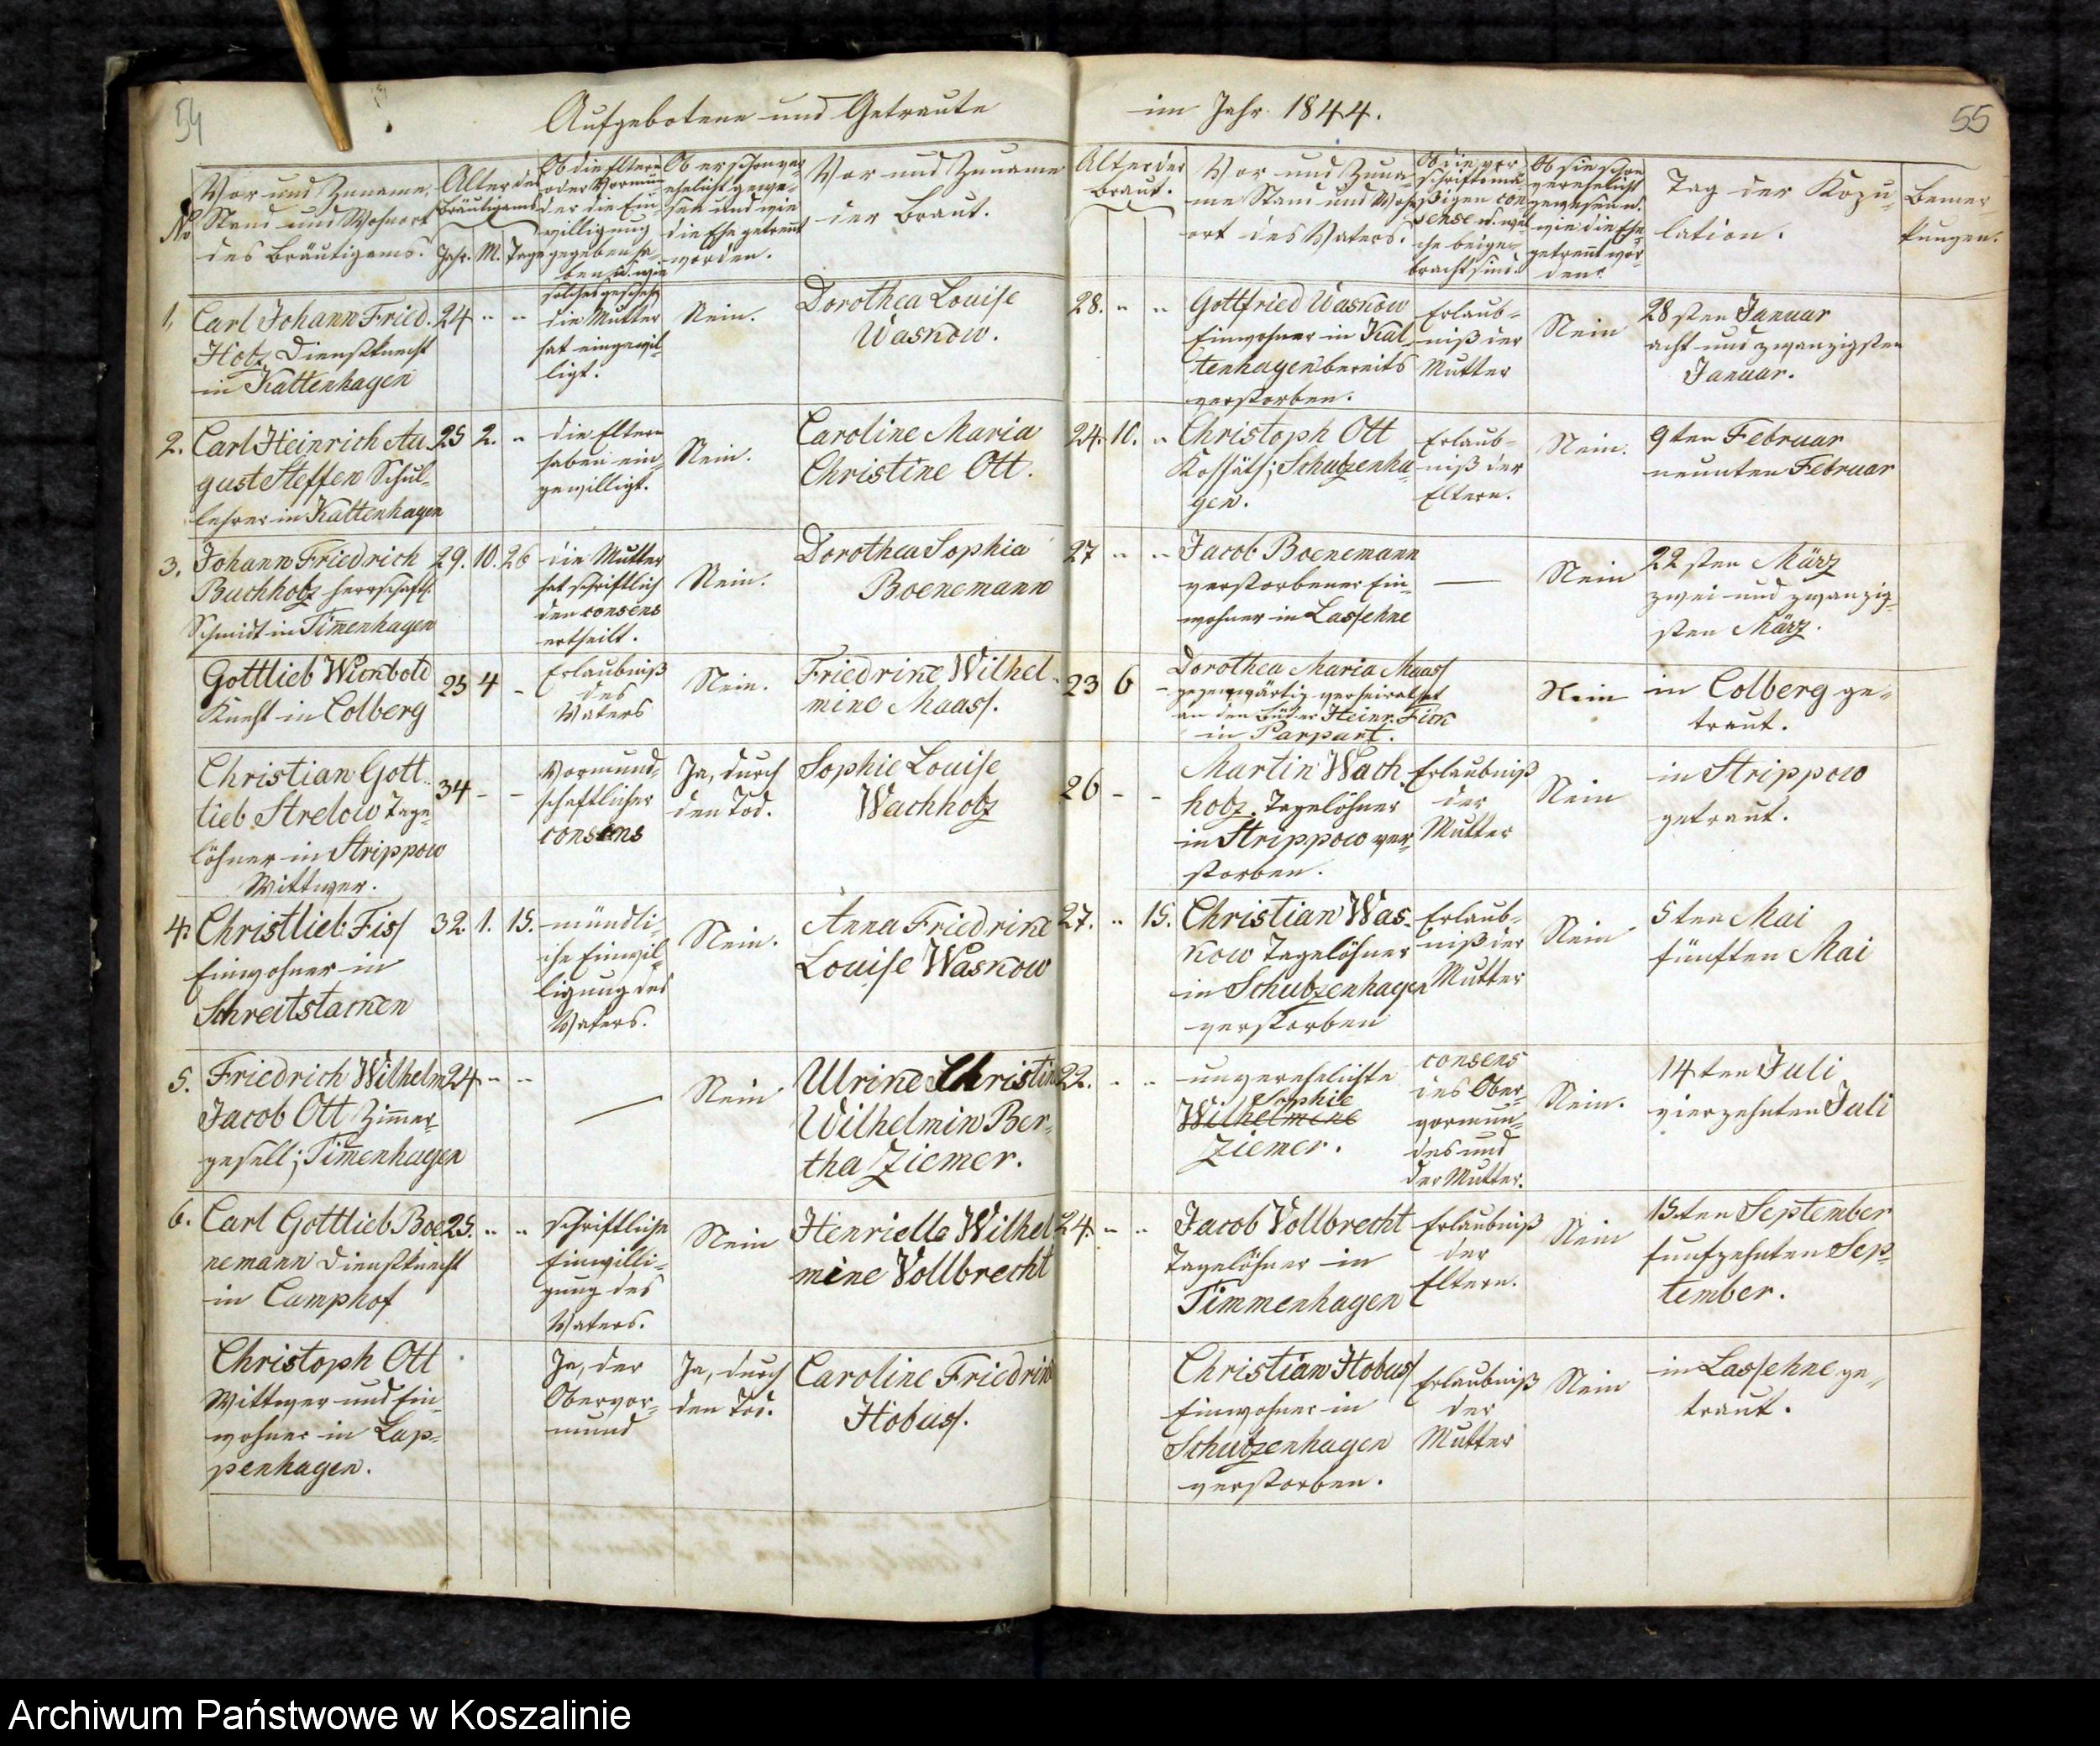 54
Aufgebotene und Getraute
im Jahr 1844.
55
No
Vor und Zuname,
Stand und Wohnort
des Bräutigams.
Alter des
Bräutigams
Jahr. M. Tage
Ob die Eltern
oder Vormün-
der die Ein-
willigung
gegeben ha-
ben u. wie
solches geschehen
Ob er schon ver-
ehelicht gewe-
sen und wie
die Ehe getrennt
worden.
Vor und Zuname
der Braut.
Alter der
Braut.
Vor und Zuna-
me Stand und Wohn-
ort des Vaters.
Ob die vor
schriftsmä-
ßigen con
sense u. wel-
che beige-
bracht sind.
Ob sie schon
verehelicht
gewesen u.
wie die Ehe
getrennt wor-
den.
Tag der Kopu-
lation.
Bemer-
kungen.
1.
Carl Johann Fried.
Hotz Dienstknecht
in Kattenhagen
24 " "
die Mutter
hat eingewil-
ligt.
Nein.
Dorothea Louise
WasKow.
28. " "
Gottfried Waskow
Einwohner in Kat
tenhagen bereits
verstorben.
Erlaub-
niß der
Mutter
Nein
28sten Januar
acht und zwanzigsten
Januar.
2.
Carl Heinrich Au-
gust Steffen Schul-
lehrer in Kattenhagen
25 2. "
die Eltern
haben ein-
gewilligt.
Nein.
Caroline Maria
Christine Ott.
24. 10. "
Christoph Ott
Kossäth i. Schutzenha
gen.
Erlaub-
niß der
Eltern.
Nein.
9ten Februar
neunten Februar
3.
Johann Friedrich
Buchholz herrschaftl.
Schmidt in Tim̅enhagen
29. 10. 26
die Mutter
hat schriftlich
den consens
ertheilt.
Nein.
Dorothea Sophia
Boenemann
27 " "
Jacob Boenemann
verstorbener Ein-
wohner in Lassehne
—
Nein
22sten März
zwei und zwanzig-
sten März.
Gottlieb Wickbold
Knecht in Colberg
25 4 -
Erlaubniß
des
Vaters
Nein.
Friedrike Wilhel-
mine Maass.
23 6 -
Dorothea Maria Maass
gegenwärtig verheirathet
an den Büdner Heinr. Fick
in Parpart.
Nein
in Colberg ge-
traut.
Christian Gott-
lieb Strelow Tage-
löhner in Strippow
Wittwer.
34 - -
Vormund-
schaftlicher
consens
Ja, durch
den Tod.
Sophie Louise
Wachholz
26 - -
Martin Wach
holz. Tagelöhner
in Strippow ver-
storben.
Erlaubniß
der
Mutter
Nein
in Strippow
getraut.
4.
Christlieb Fiss
Einwohner in
Schreitstacken
32. 1. 15.
mündli-
che Einwil-
ligung des
Vaters.
Nein.
Anna Friedrike
Louise Waskow
27. " 15.
Christian Was-
kow Tagelöhner
in Schutzenhagen
verstorben
Erlaub-
niß der
Mutter
Nein
5ten Mai
fünften Mai
5.
Friedrich Wilhelm
Jacob Ott Zim̅er-
gesell i. Tim̅enhagen
24 " "
—
Nein
Ulrike Christin
Wilhelmin Ber-
tha Ziemer.
22. " "
unverehelichte
Sophie
Wilhelmine
Ziemer.
consens
des Ober-
vormun-
des und
der Mutter.
Nein.
14ten Juli
vierzehnten Juli
6.
Carl Gottlieb Boe
nemann Dienstknecht
in Camphof
25. " "
schriftliche
Einwilli-
gung des
Vaters.
Nein
Henriette Wilhel
mine Vollbrecht
24. " "
Jacob Vollbrecht
Tagelöhner in
Timmenhagen
Erlaubniß
der
Eltern.
Nein
15ten September
funfzehnten Sep-
tember.
Christoph Ott
Wittwer und Ein-
wohner in Lap-
penhagen.
Ja, der
Obervor-
mund
Ja, durch
den Tod.
Caroline Friedrike
Hobuss.
Christian Hobuss
Einwohner in
Schutzenhagen
verstorben.
Erlaubniß
der
Mutter
Nein
in Lassehne ge-
traut.
Archiwum Państwowe w Koszalinie